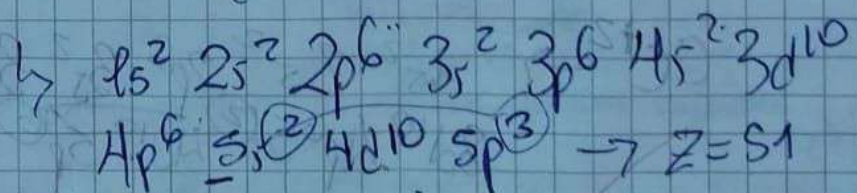 ↳ 1s² 2s² 2p⁶ 3s² 3p⁶ 4s² 3d¹⁰
4p⁶ 5s² 4d¹⁰ 5p³ → Z=51